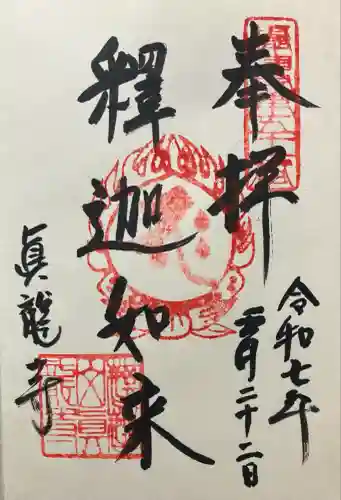 奉拝
令和七年
二月二十二日
釋迦如来
眞龍寺